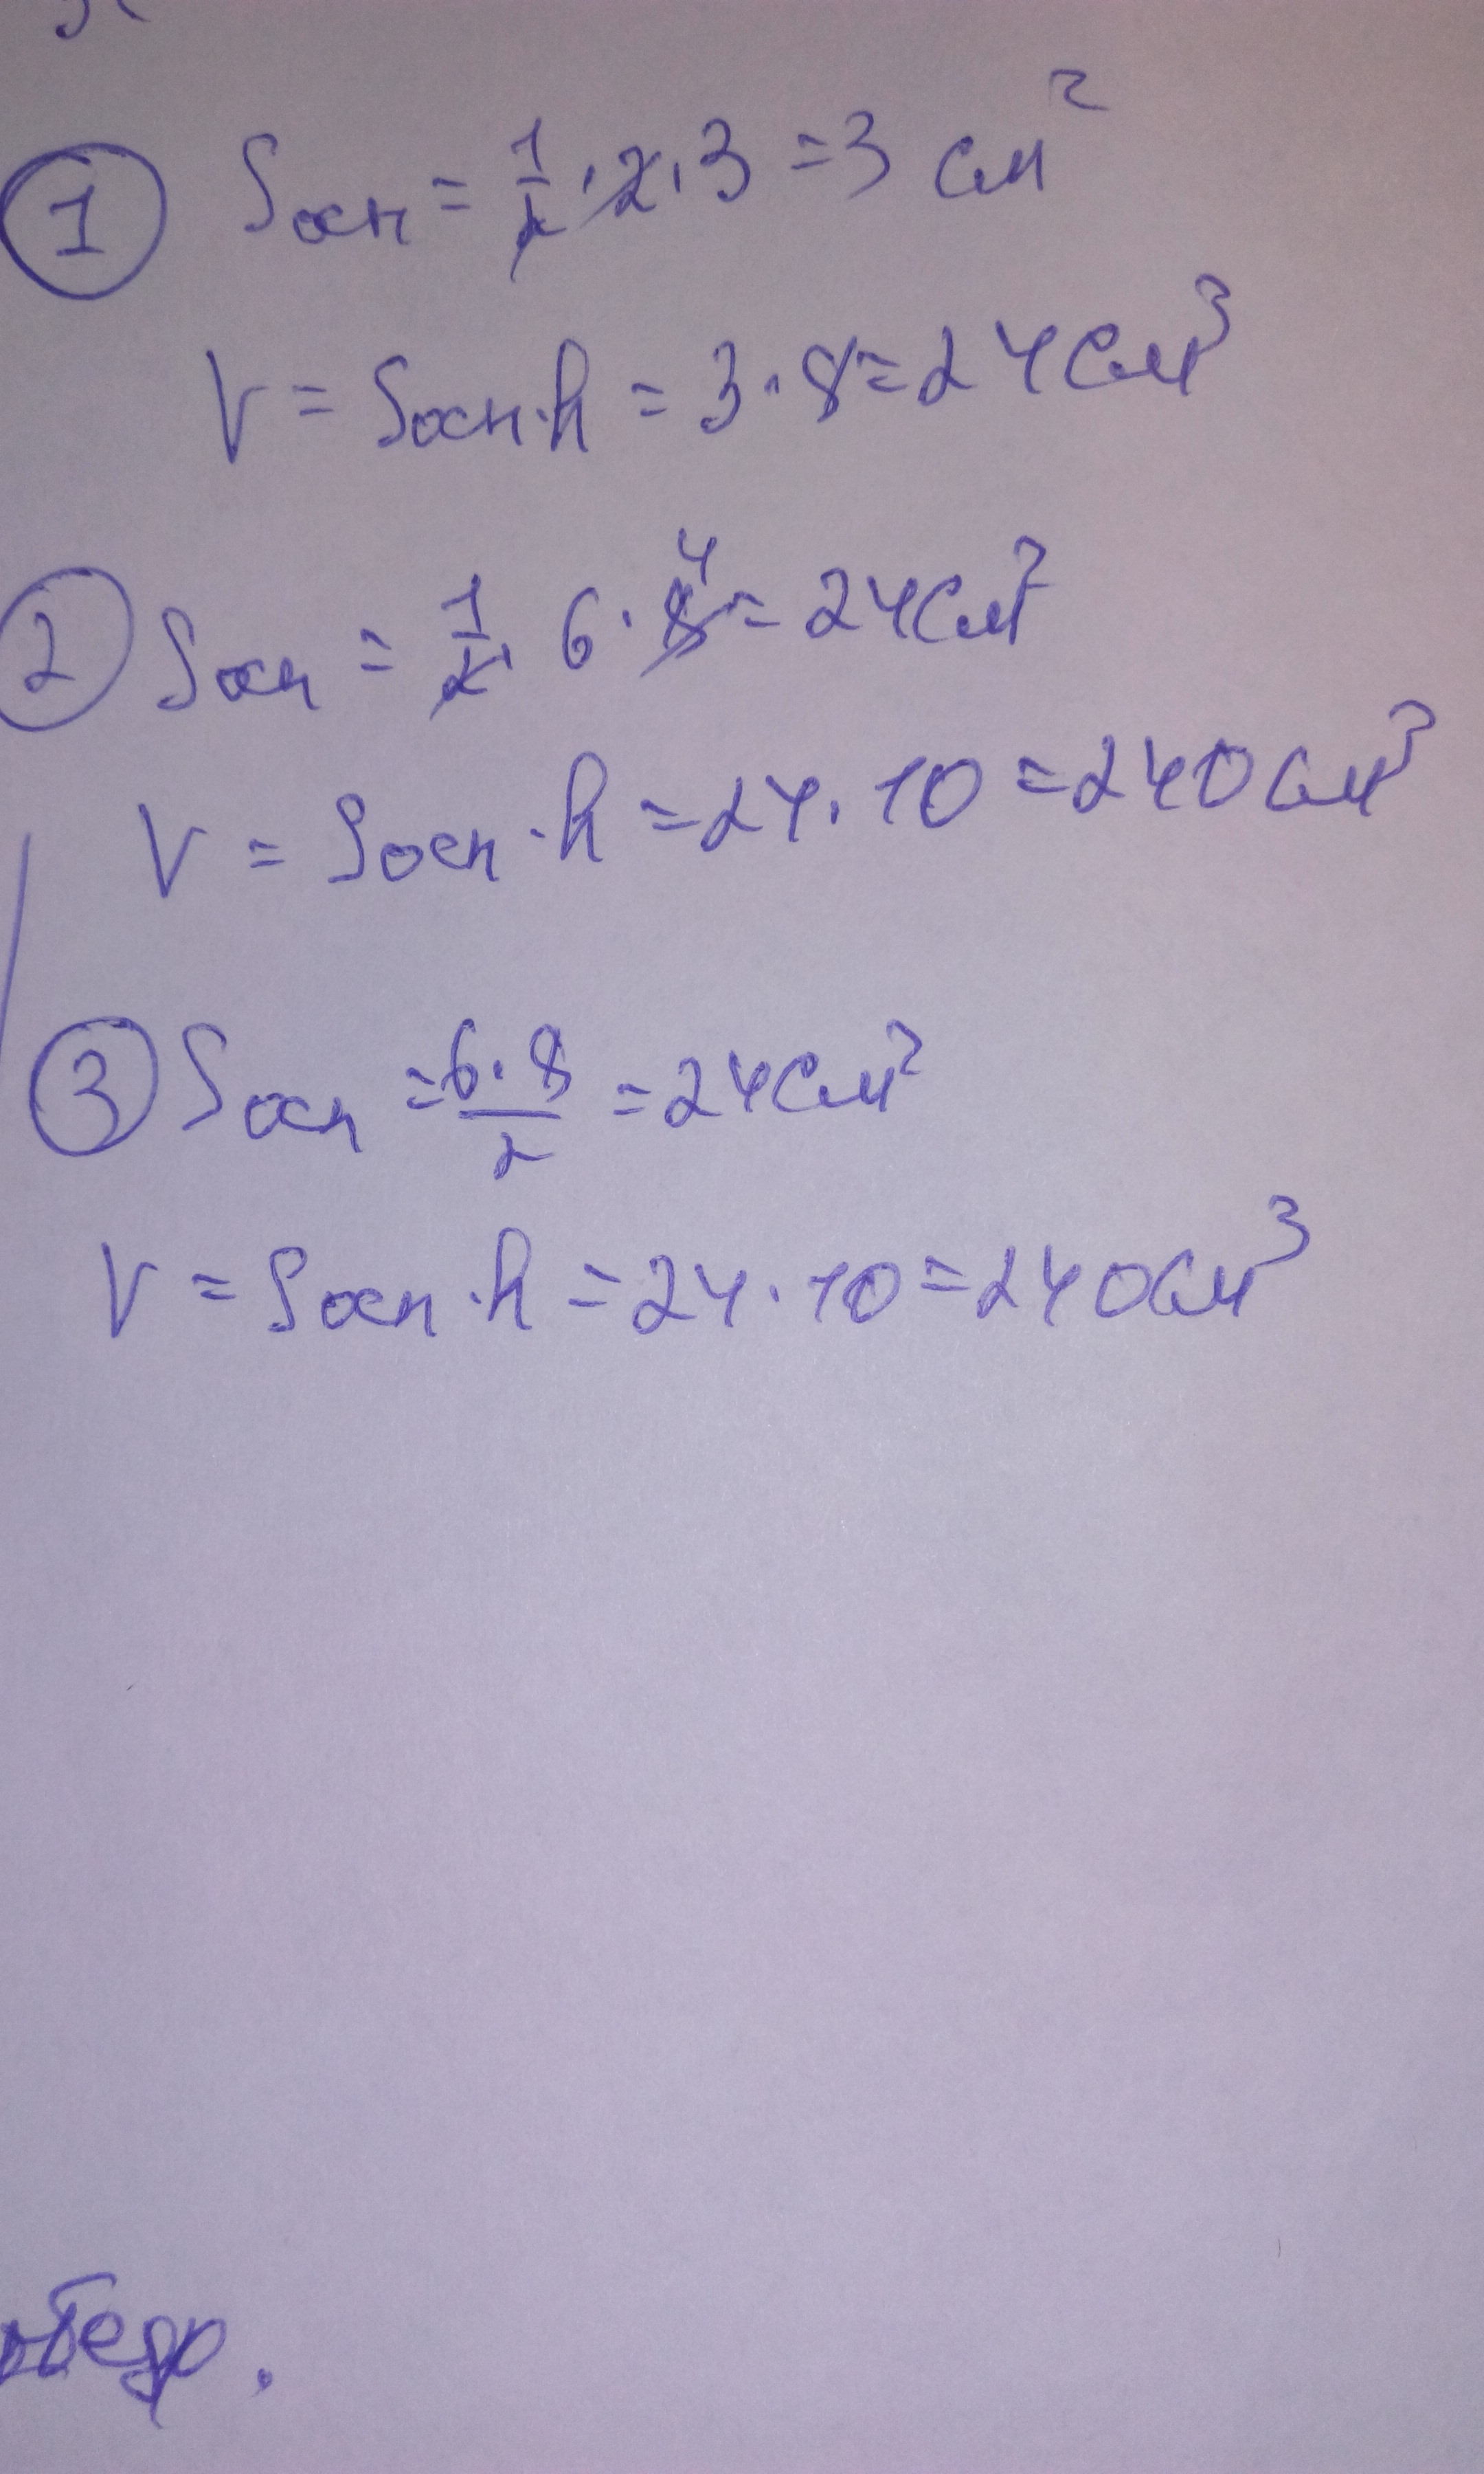 1 Sосн = 1/2 · 2 · 3 = 3 см²
V = Sосн · h = 3 · 8 = 24 см³
2 Sосн = 1/2 · 6 · 8 4 = 24 см²
V = Sосн · h = 24 · 10 = 240 см³
3 Sосн = 6 · 8 / 2 = 24 см²
V = Sосн · h = 24 · 10 = 240 см³